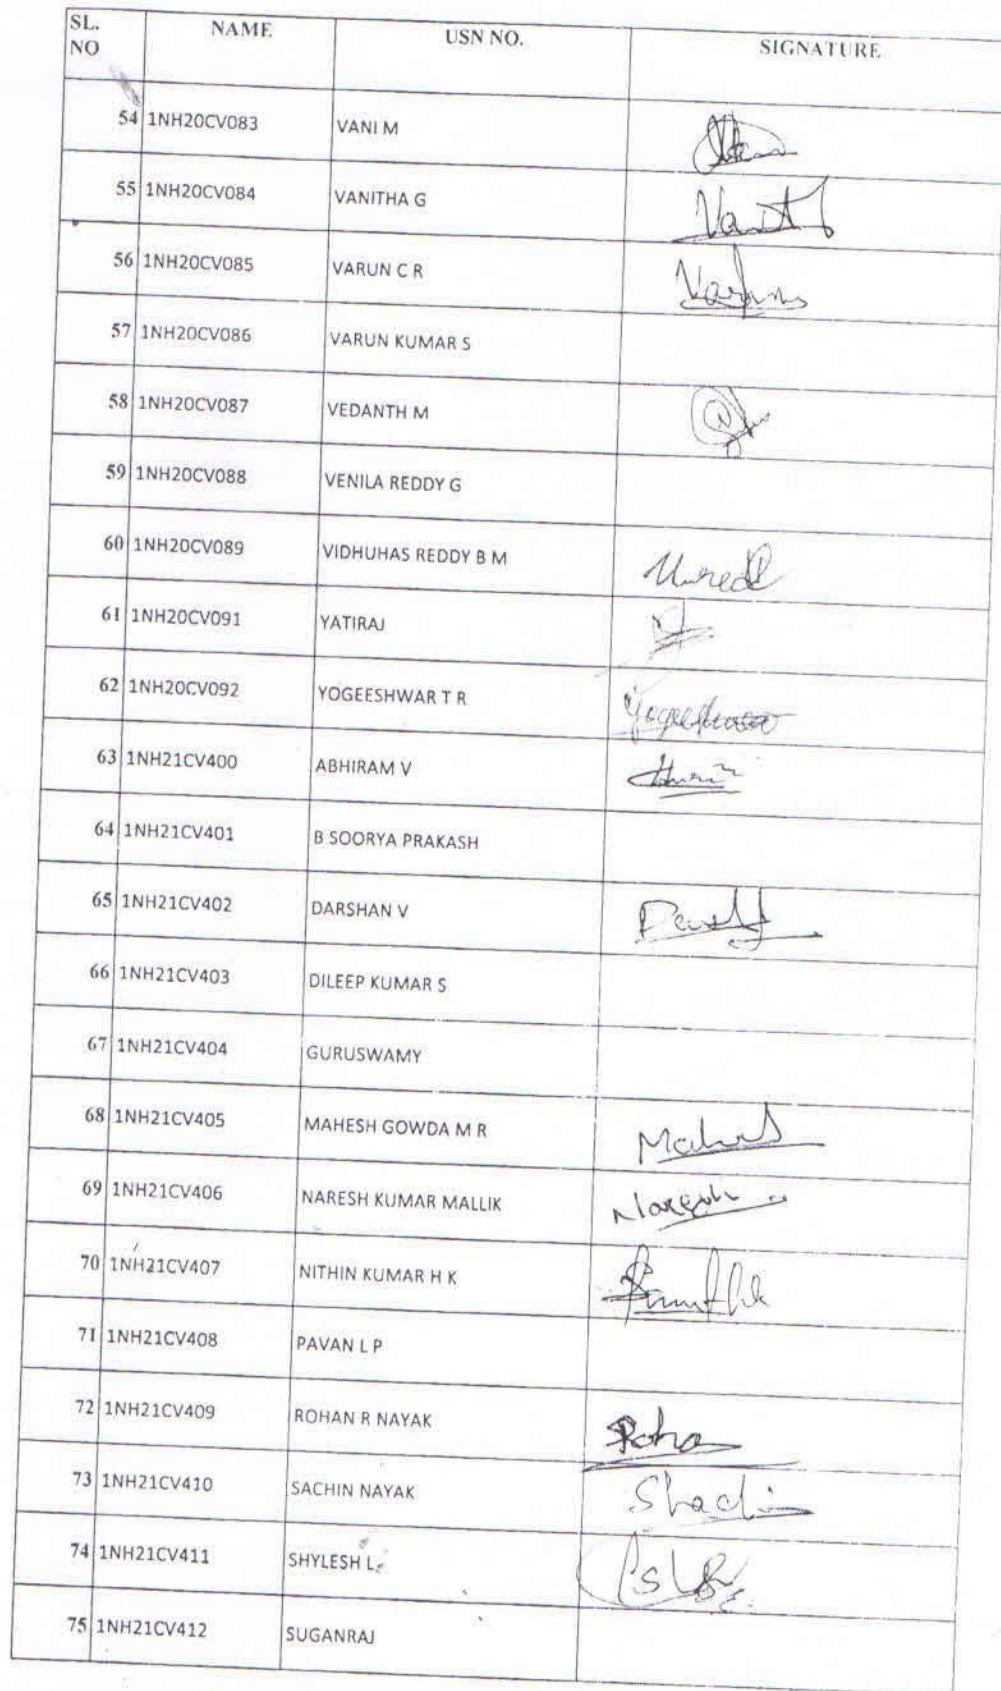 SL. NO NAME USN NO. SIGNATURE
54 1NH20CV083 VANI M
55 1NH20CV084 VANITHA G
56 1NH20CV085 VARUN C R
57 1NH20CV086 VARUN KUMAR S
58 1NH20CV087 VEDANTH M
59 1NH20CV088 VENILA REDDY G
60 1NH20CV089 VIDHUHAS REDDY B M
61 1NH20CV091 YATIRAJ
62 1NH20CV092 YOGEESHWAR T R
63 1NH21CV400 ABHIRAM V
64 1NH21CV401 B SOORYA PRAKASH
65 1NH21CV402 DARSHAN V
66 1NH21CV403 DILEEP KUMAR S
67 1NH21CV404 GURUSWAMY
68 1NH21CV405 MAHESH GOWDA M R
69 1NH21CV406 NARESH KUMAR MALLIK Naresh
70 1NH21CV407 NITHIN KUMAR H K
71 1NH21CV408 PAVAN L P
72 1NH21CV409 ROHAN R NAYAK Roha
73 1NH21CV410 SACHIN NAYAK
74 1NH21CV411 SHYLESH L
75 1NH21CV412 SUGANRAJ